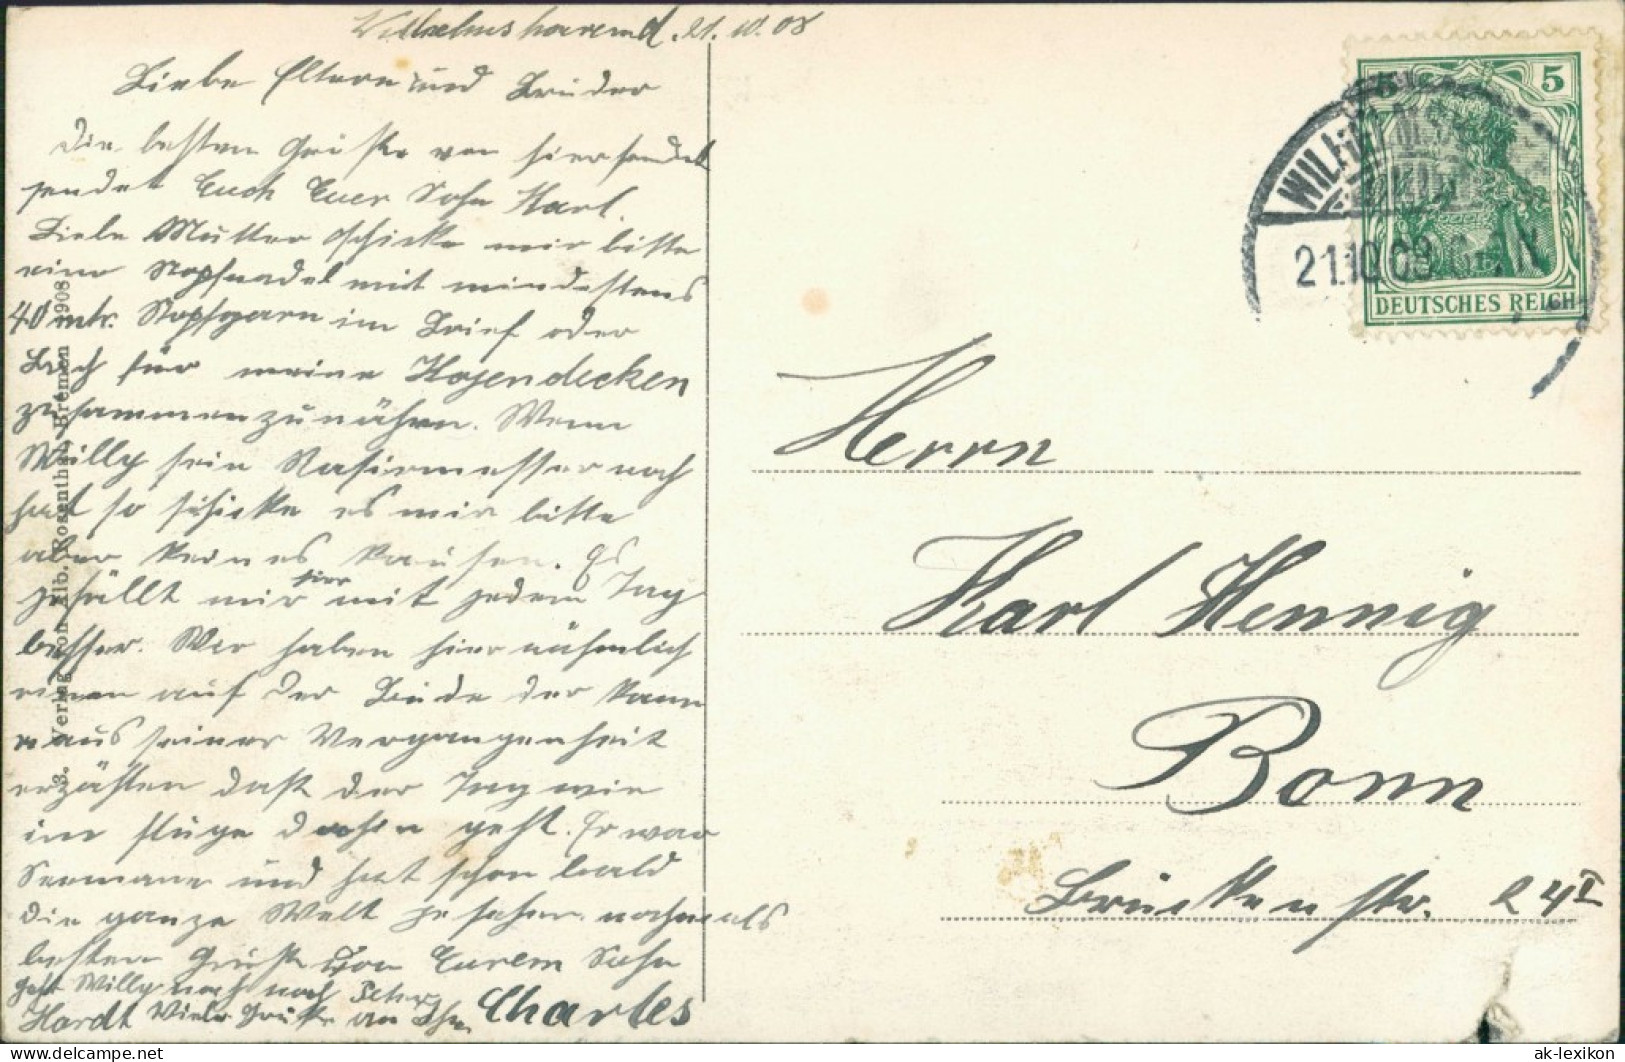 Wilhelmshaven d. 21.10.08
Liebe Eltern und Brüder
Die besten Grüße von hier sendet
sendet Euch Euer Sohn Karl.
Liebe Mutter schicke mir bitte
eine Stopfnadel mit mindestens
40 mtr. Stopfgarn im Brief oder
für meine Hosendecken
zusammenzunähen. Wenn
Willy sein Rasiermesser noch
hat so schicke es mir bitte
aber keines kaufen. Es
gefällt mir hier mit jedem Tag
besser. Wir haben hier nähmlich
einen auf der Bude der kann
aus seiner Vergangenheit
erzählen daß der Tag wie
im Fluge geht. Er war
Seemann und hat schon bald
die ganze Welt gesehen. nochmals
besten Gruß von Eurem Sohn
geht Willy noch nach
Hardt Viele Grüße an Ihn Charles
3. Verlag von Alb. Rosenthal, Bremen 1908
5
DEUTSCHES REICH
WILHELMSHAVEN
21.10.08
Herrn
Karl Hennig
Bonn
Brückenstr. 24 I
ak-lexikon
delcampe.net